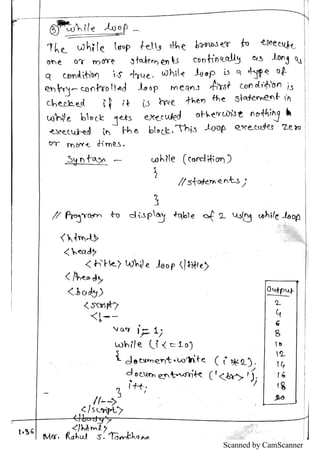 ③ while loop -
The while loop tells the browser to execute
one or more statements continually as long as
a condition is true. While loop is a type of
entry-controlled loop means first condition is
checked if it is true then the statement in
while block gets executed otherwise nothing
executed in the block. This loop executes zero
or more times.
Syntax - while (condition)
{
//statements;
}
// Program to display table of 2 using while loop
<html>
<head>
<title> While loop </title>
</head>
<body>
<script>
<!--
var i=1;
while (i<=10)
{ document.write (i*2);
document.write ('<br>');
i++;
}
//-->
</script>
</body>
</html>
Output
2
4
6
8
10
12
14
16
18
20
1.36 Mr. Rahul S. Tamkhane
Scanned by CamScanner